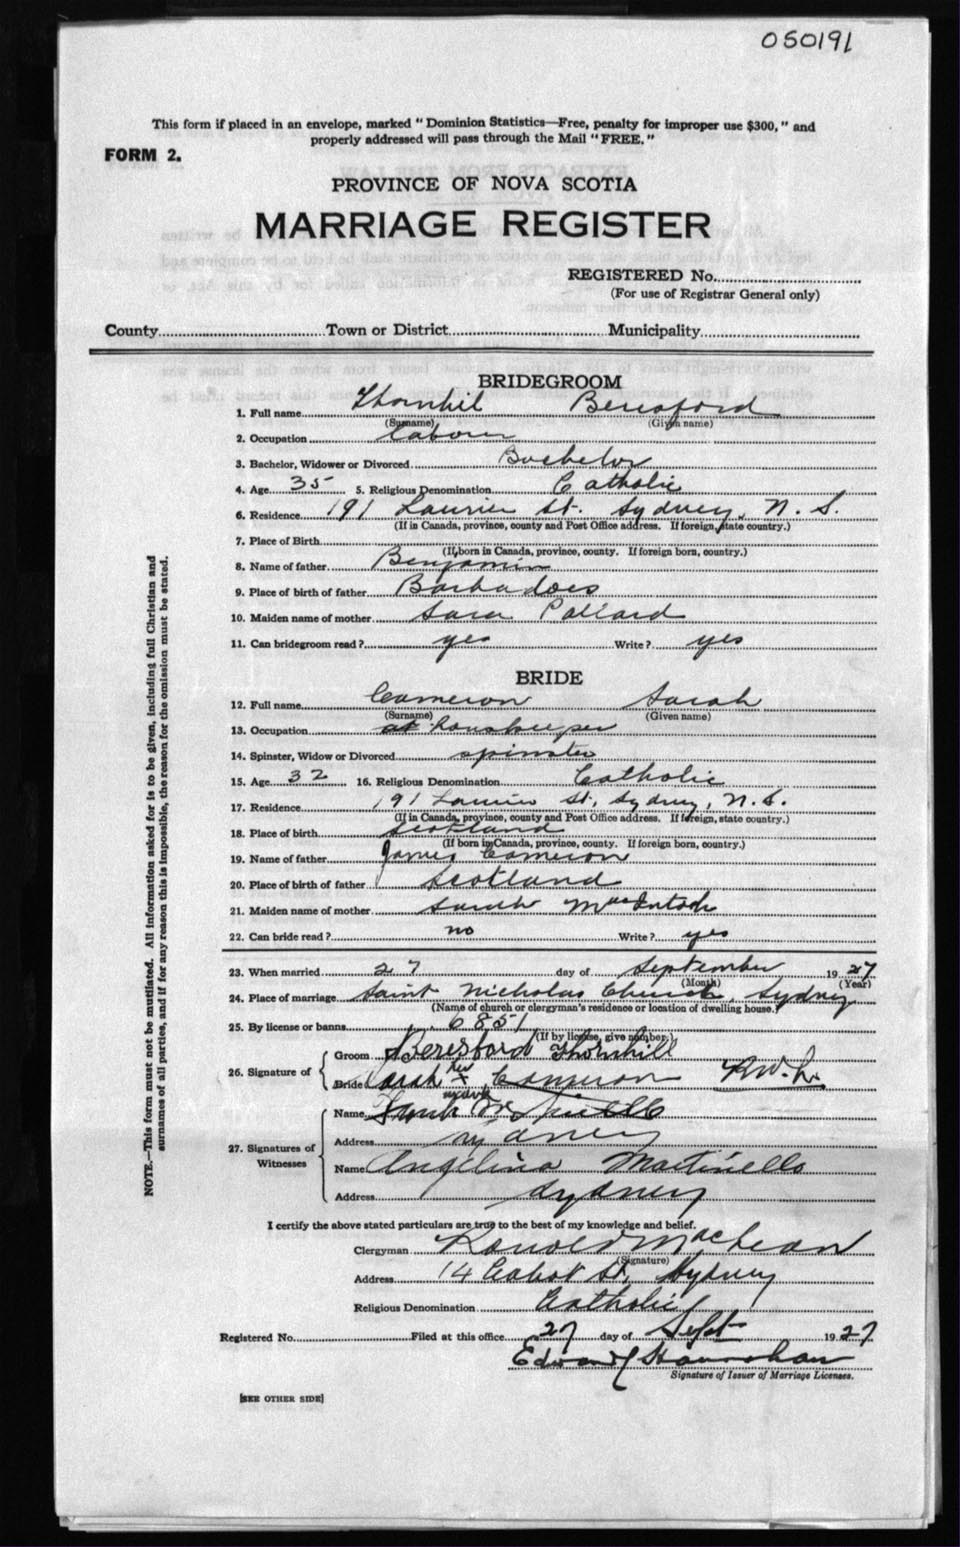 050191
This form if placed in an envelope, marked "Dominion Statistics—Free, penalty for improper use $300," and
properly addressed will pass through the Mail "FREE."
FORM 2.
PROVINCE OF NOVA SCOTIA
MARRIAGE REGISTER
REGISTERED No.
(For use of Registrar General only)
County Town or District Municipality
BRIDEGROOM
1. Full name Thornhil Beresford
(Surname) (Given name)
2. Occupation Laborer
3. Bachelor, Widower or Divorced Bachelor
4. Age 35 5. Religious Denomination Catholic
6. Residence 191 Laurier St. Sydney, N. S.
(If in Canada, province, county and Post Office address. If foreign, state country.)
7. Place of Birth
(If born in Canada, province, county. If foreign born, country.)
8. Name of father Benjamin
9. Place of birth of father Barbadoes
10. Maiden name of mother Sara Pollard
11. Can bridegroom read? yes Write? yes
BRIDE
12. Full name Cameron Sarah
(Surname) (Given name)
13. Occupation at Houskeeper
14. Spinster, Widow or Divorced spinster
15. Age 32 16. Religious Denomination Catholic
17. Residence 191 Laurier St, Sydney, N. S.
(If in Canada, province, county and Post Office address. If foreign, state country.)
18. Place of birth Scotland
(If born in Canada, province, county. If foreign born, country.)
19. Name of father James Cameron
20. Place of birth of father Scotland
21. Maiden name of mother Sarah MacIntosh
22. Can bride read? no Write? yes
23. When married 27 day of September 1927
(Month) (Year)
24. Place of marriage Saint Nicholas Church, Sydney
(Name of church or clergyman's residence or location of dwelling house.)
25. By license or banns 6851
(If by license, give number.)
26. Signature of
Groom Beresford Thornhill
Bride Sarah her x mark Cameron R.W.L.
27. Signatures of Witnesses
Name
Address Sydney
Name Angelina Martinello
Address Sydney
I certify the above stated particulars are true to the best of my knowledge and belief.
Clergyman Ronald MacLean
(Signature)
Address 14 Cabot St, Sydney
Religious Denomination Catholic
Registered No. Filed at this office 27 day of Sept 1927
Edward Hanrahan
Signature of Issuer of Marriage Licenses.
[SEE OTHER SIDE]
NOTE.—This form must not be mutilated. All information asked for is to be given, including full Christian and
surnames of all parties, and if for any reason this is impossible, the reason for the omission must be stated.